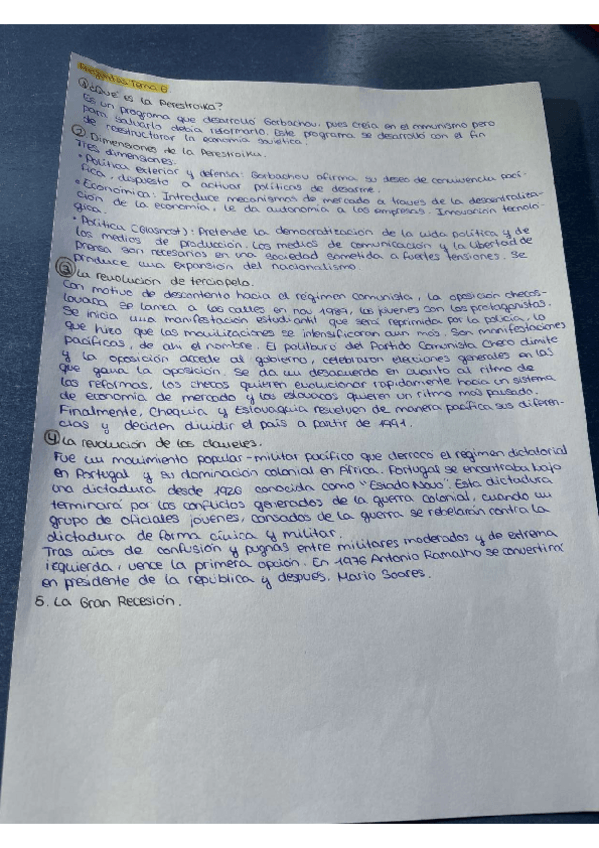 Preguntas Tema 6
① ¿Qué es la Perestroika?
Es un programa que desarrolló Gorbachov, pues creía en el comunismo pero
para salvarlo debía reformarlo. Este programa se desarrolló con el fin
de reestructurar la economía soviética.
② Dimensiones de la Perestroika.
Tres dimensiones:
• Política exterior y defensa: Gorbachov afirma su deseo de convivencia pací-
fica, dispuesto a activar políticas de desarme.
• Económica: Introduce mecanismos de mercado a traves de la descentraliza-
ción de la economía, le da autonomía a las empresas. Innovación tecnoló-
gica.
• Política (Glasnost): Pretende la democratización de la vida política y de
los medios de producción. Los medios de comunicación y la libertad de
prensa son necesarios en una sociedad sometida a fuertes tensiones. Se
produce una expansión del nacionalismo.
③ La revolución de terciopelo.
Con motivo de descontento hacia el régimen comunista, la oposición checos-
lovaca se lanza a las calles en nov 1989, los jóvenes son los protagonistas.
Se inicia una manifestación estudiantil que será reprimida por la policía, lo
que hizo que las movilizaciones se intensificaran aun más. Son manifestaciones
pacíficas, de ahi el nombre. El politburo del Partido Comunista Checo dimite
y la oposición accede al gobierno, celebraron elecciones generales en las
que gana la oposición. Se da un desacuerdo en cuanto al ritmo de
las reformas, los checos quieren evolucionar rapidamente hacia un sistema
de economía de mercado y los eslovacos quieren un ritmo más pausado.
Finalmente, Chequia y Eslovaquia resuelven de manera pacífica sus diferen-
cias y deciden dividir el país a partir de 1991.
④ La revolución de los claveles.
Fue un movimiento popular-militar pacífico que derrocó el regimen dictatorial
en Portugal y su dominación colonial en África. Portugal se encontraba bajo
una dictadura desde 1926 conocida como "Estado Novo". Esta dictadura
terminará por los conflictos generados de la guerra colonial, cuando un
grupo de oficiales jóvenes, cansados de la guerra se rebelarán contra la
dictadura de forma cívica y militar.
Tras años de confusión y pugnas entre militares moderados y de extrema
izquierda, vence la primera opción. En 1976 Antonio Ramalho se convertirá
en presidente de la república y después, Mario Soares.
5. La Gran Recesión.